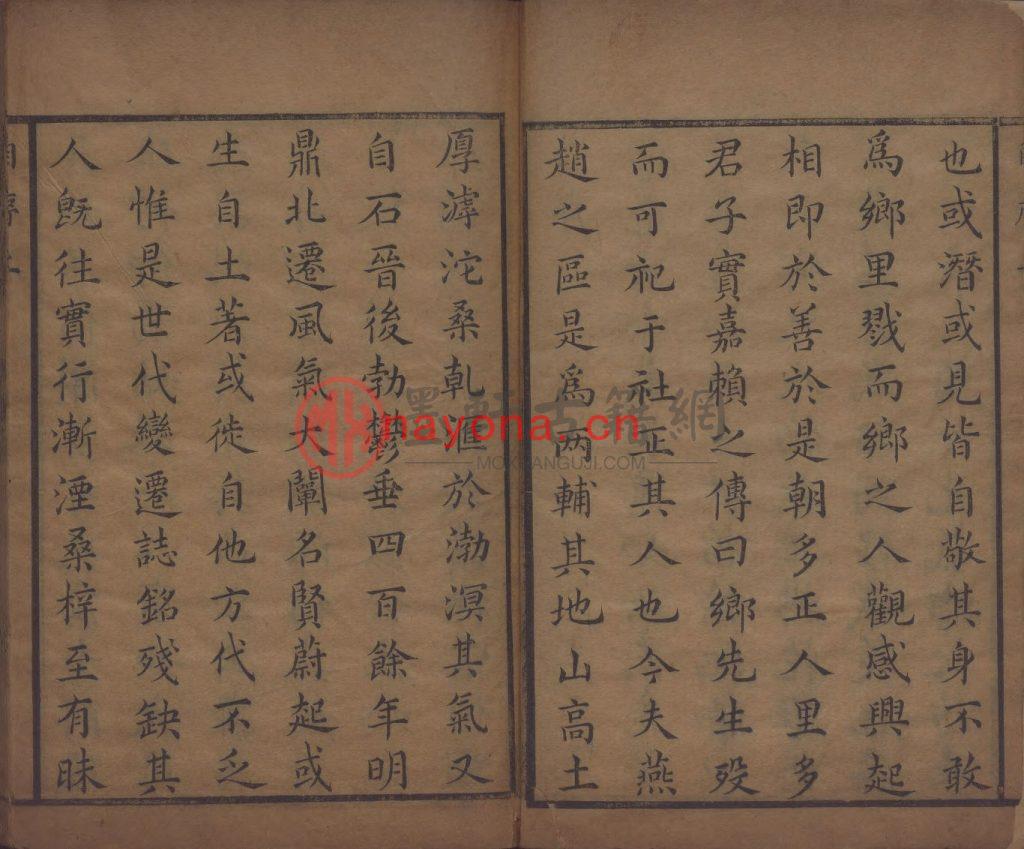 也或潛或見皆自敬其身不敢
爲鄉里戮而鄉之人觀感興起
相即於善於是朝多正人里多
君子實嘉賴之傳曰鄉先生歿
而可祀于社正其人也今夫燕
趙之區是爲兩輔其地山高土
厚滹沱桑乾滙於渤溟其氣又
自石晉後勃鬱垂四百餘年明
鼎北遷風氣大闡名賢蔚起或
生自土著或徙自他方代不乏
人惟是世代變遷誌銘殘缺其
人旣往實行漸湮桑梓至有昧
墨軒古籍網
nayona.cn
MOXUANGUJI.COM